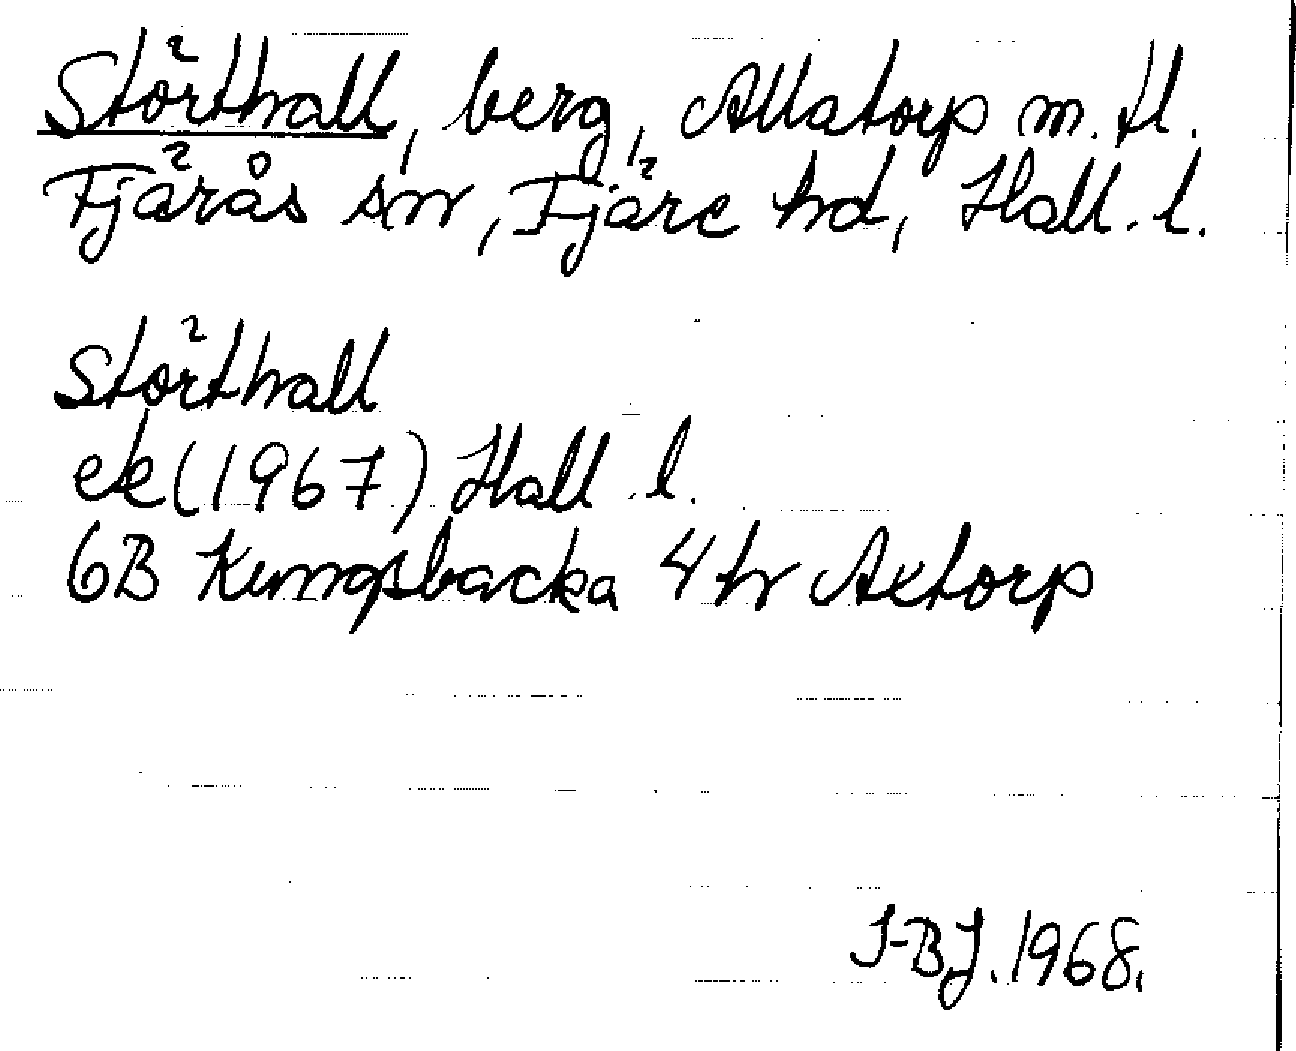 Störthall, berg, Allatorp m. fl.
Fjärås sn, Fjäre hd, Hall. l.
Störthall
ek (1967) Hall l.
6B Kungsbacka 4 h Axtorp
I-BJ. 1968.